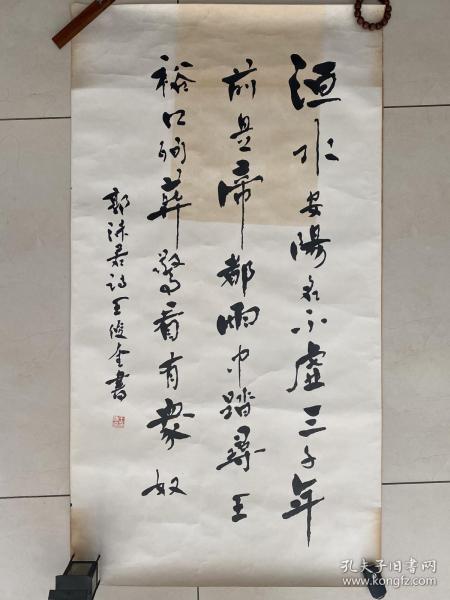 洹水安陽名不虛三千年
前是帝都雨中踏尋王
裕口殉葬驚看有衆奴
郭沫若诗王俊金書
孔夫子旧书网
www.kongfz.com